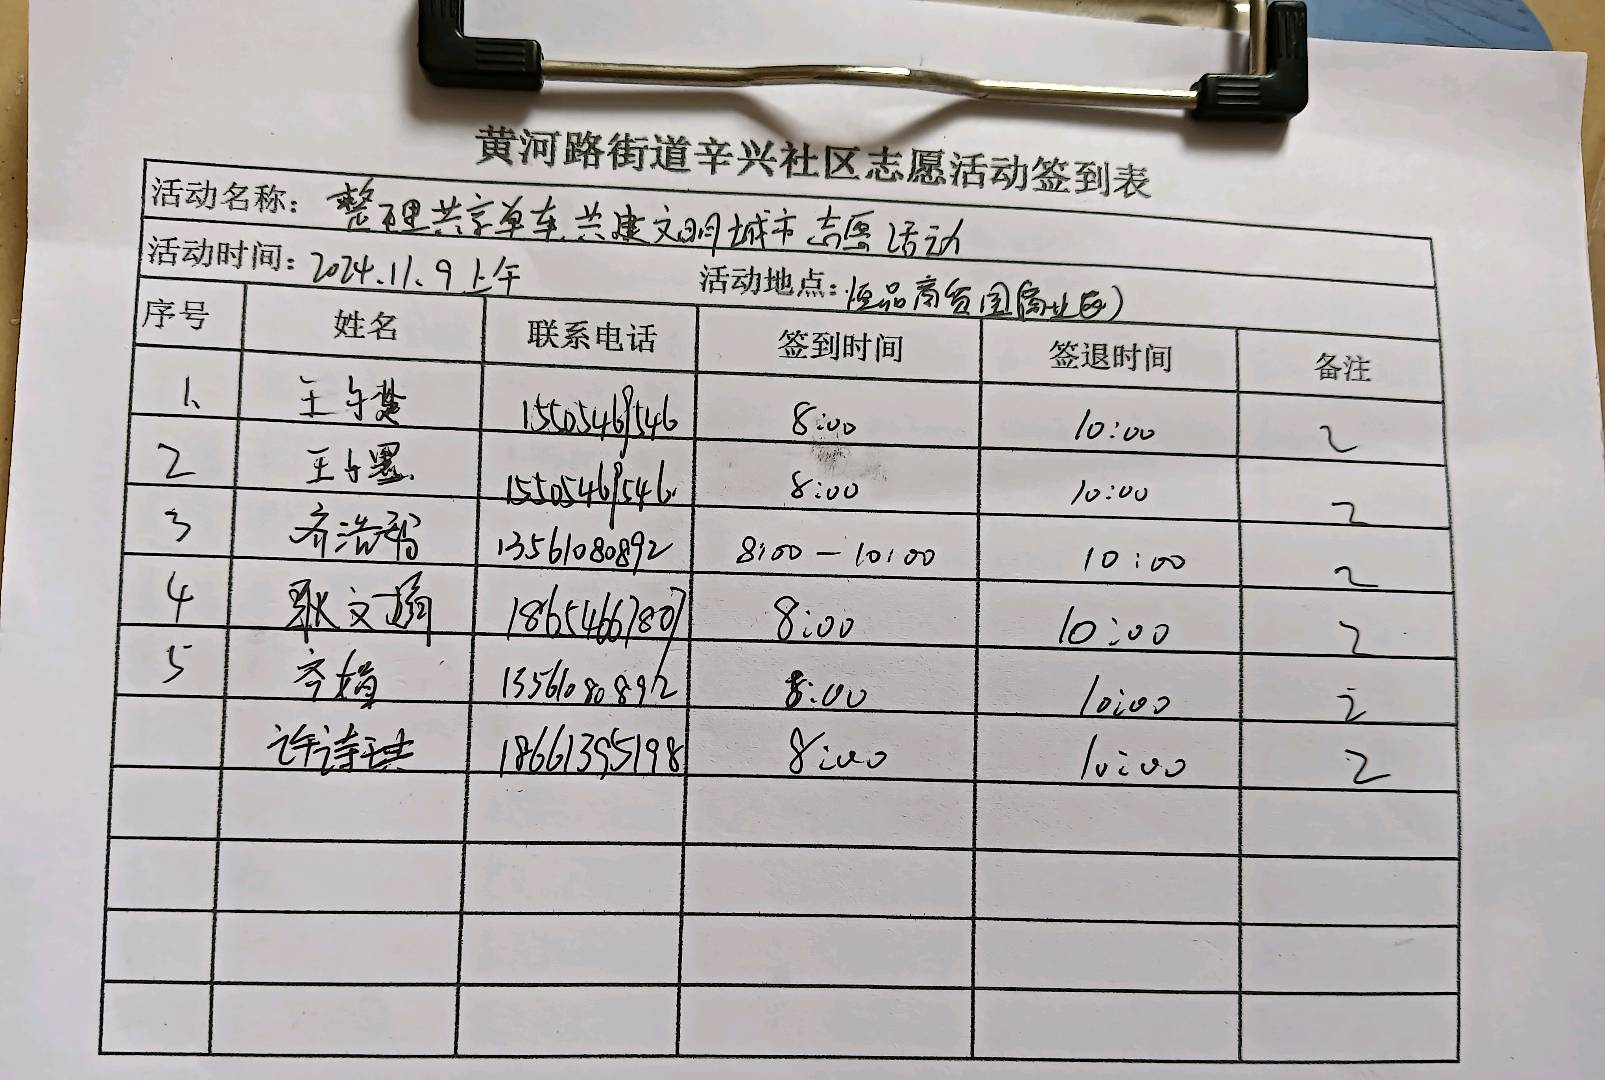 黄河路街道辛兴社区志愿活动签到表
活动名称：整理共享单车共建文明城市志愿活动
活动时间：2024.11.9上午 活动地点：恒品商贸园(商业区)
序号 姓名 联系电话 签到时间 签退时间 备注
1、 王 15505469546 8:00 10:00 2
2 王 墨 15505469546 8:00 10:00 2
3 齐浩 13561080892 8:00—10:00 10:00 2
4 耿文 18654667807 8:00 10:00 2
5 齐娟 13561080892 8:00 10:00 2
许诗琪 18661395198 8:00 10:00 2